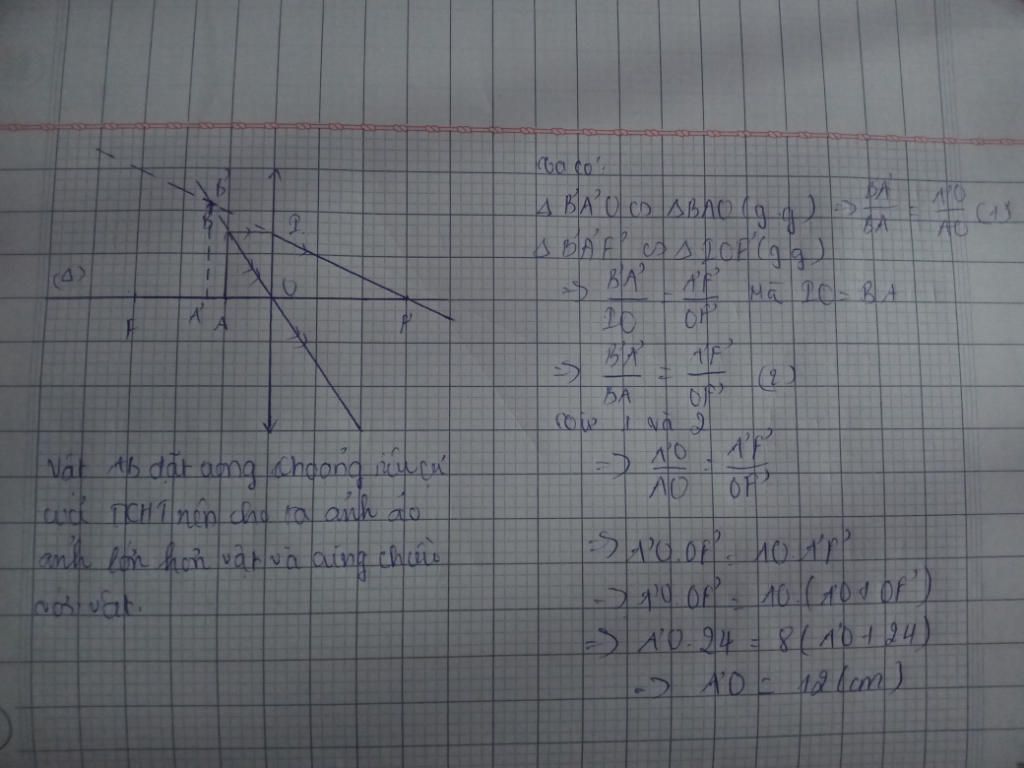 B'
B
I
(Δ)
O
F
A'
A
F'
Vật AB đặt trong khoảng tiêu cự
của TKHT nên cho ra ảnh ảo
ảnh lớn hơn vật và cùng chiều
với vật.
Ta có:
Δ B'A'O ∽ Δ BAO (g.g) => B'A'/BA = A'O/AO (1)
Δ B'A'F' ∽ Δ IOF' (g.g)
=> B'A'/IO = A'F'/OF' Mà IO = BA
=> B'A'/BA = A'F'/OF' (2)
1 và 2
=> A'O/AO = A'F'/OF'
=> A'O.OF' = AO.A'F'
=> A'O.OF' = AO(A'O+OF')
=> A'O.24 = 8(A'O+24)
=> A'O = 12(cm)